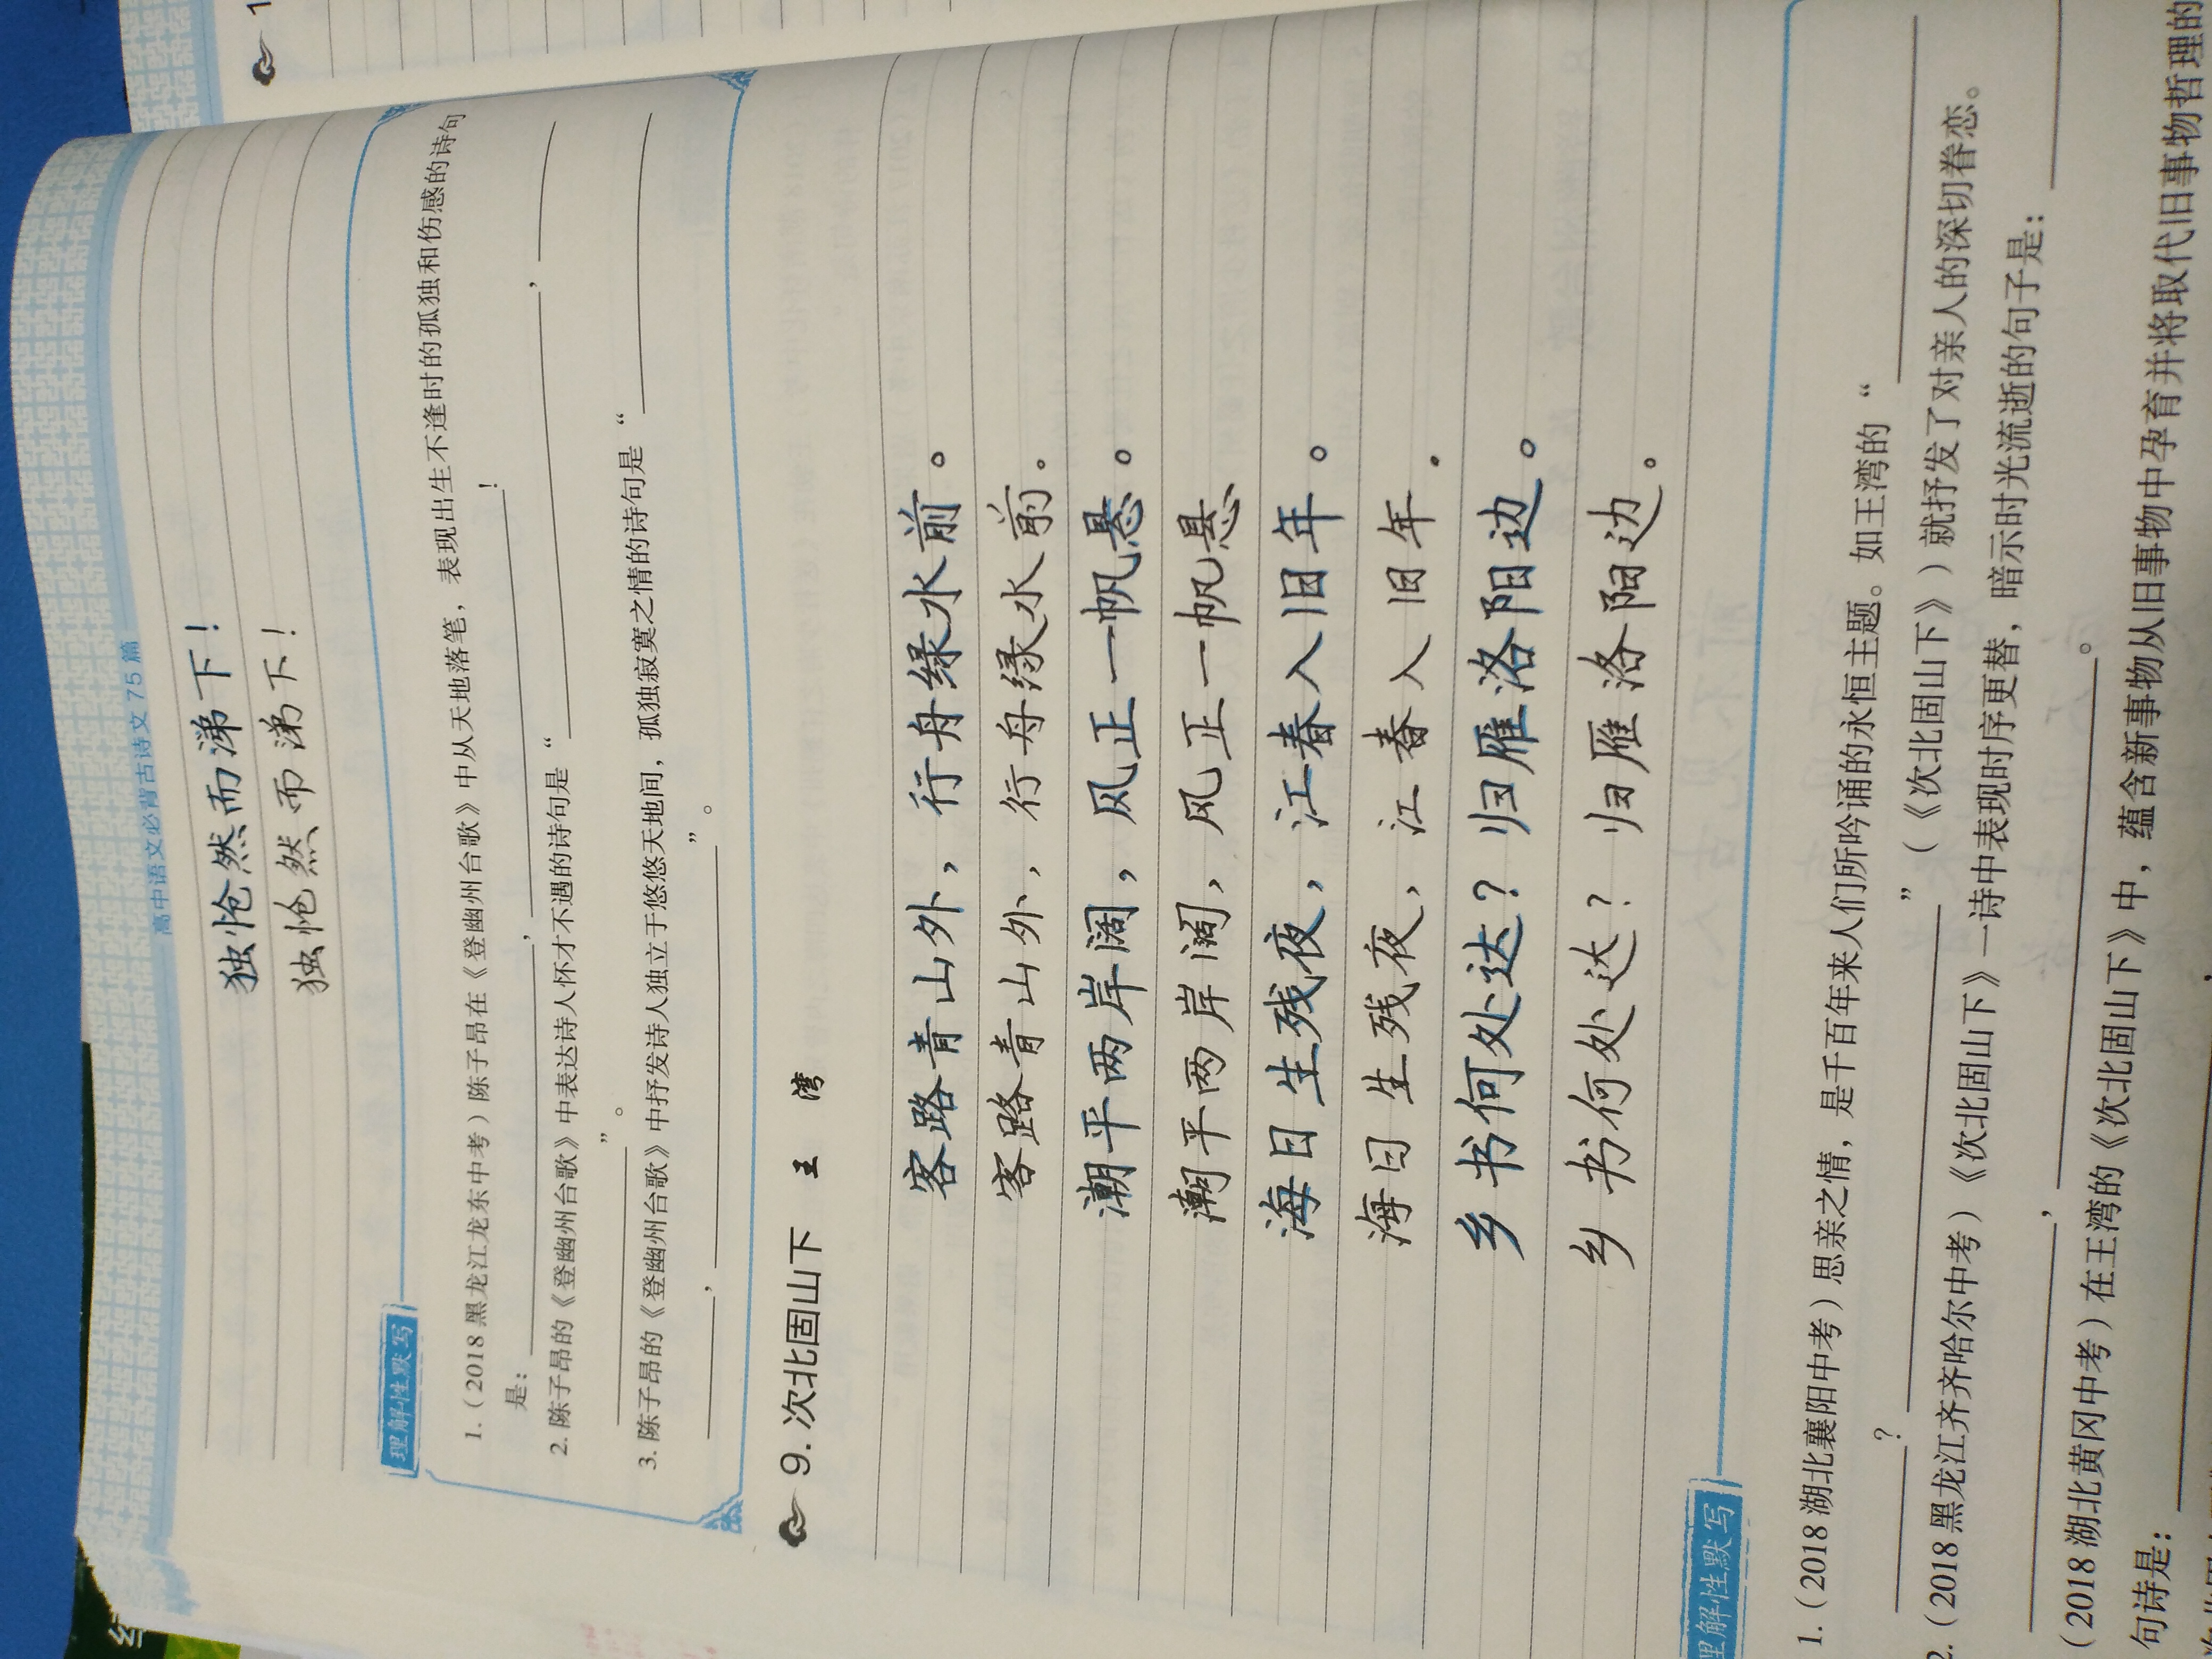 高中语文必背古诗文75篇
独怆然而涕下！
独怆然而涕下！
理解性默写
1.（2018黑龙江龙东中考）陈子昂在《登幽州台歌》中从天地落笔，表现出生不逢时的孤独和伤感的诗句
是：，，，！
2.陈子昂的《登幽州台歌》中表达诗人怀才不遇的诗句是“，
”。
3.陈子昂的《登幽州台歌》中抒发诗人独立于悠悠天地间，孤独寂寞之情的诗句是“
，”。
9.次北固山下 王 湾
客路青山外，行舟绿水前。
客路青山外，行舟绿水前。
潮平两岸阔，风正一帆悬。
潮平两岸阔，风正一帆悬
海日生残夜，江春入旧年。
海日生残夜，江春入旧年.
乡书何处达？归雁洛阳边。
乡书何处达？归雁洛阳边。
理解性默写
1.（2018湖北襄阳中考）思亲之情，是千百年来人们所吟诵的永恒主题。如王湾的“
？”（《次北固山下》）就抒发了对亲人的深切眷恋。
2.（2018黑龙江齐齐哈尔中考）《次北固山下》一诗中表现时序更替，暗示时光流逝的句子是：
，。
（2018湖北黄冈中考）在王湾的《次北固山下》中，蕴含新事物从旧事物中孕育并将取代旧事物哲理的
句诗是：，